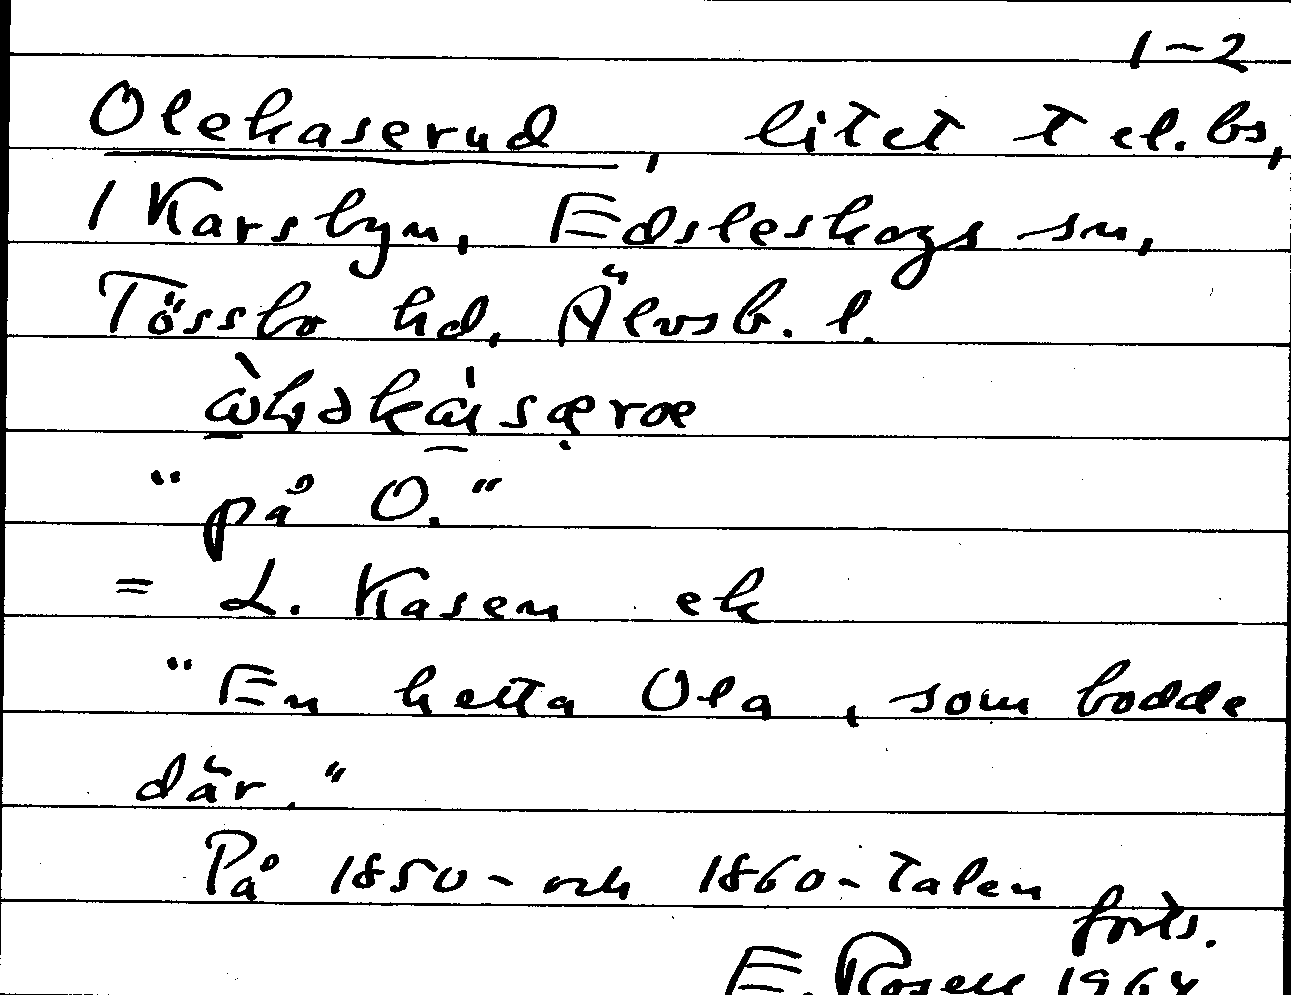 1-2
Olekaserud, litet t el. bs,
i Karsbyn, Edsleskogs sn,
Tössbo hd, Älvsb. l.
"på O."
= L. Kasen ek
"En hetta Ola, som bodde
där."
På 1850- och 1860-talen
forts.
E. Rosell 1964